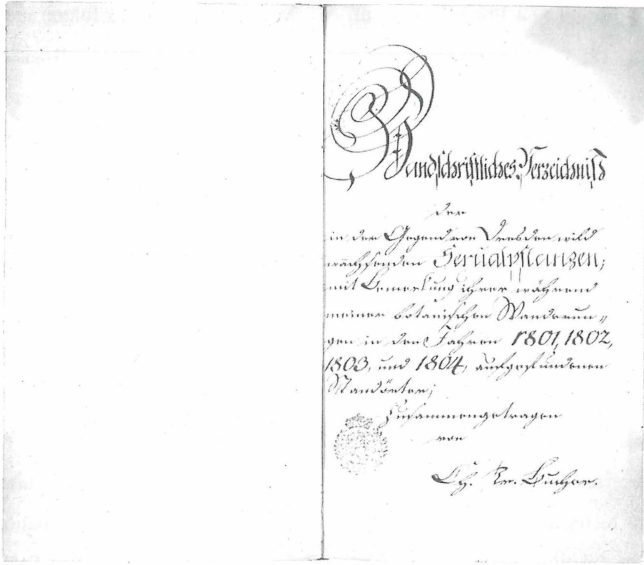 Handschriftliches Verzeichniß
der
in der Gegend von Dresden wild
wachsenden Sexualpflanzen;
mit Bemerkung ihrer während
meiner botanischen Wanderun„
gen in den Jahren 1801, 1802,
1803, und 1804, aufgefundenen
Standörter;
Zusammengetragen
von
Ch. Tr. Bucher.